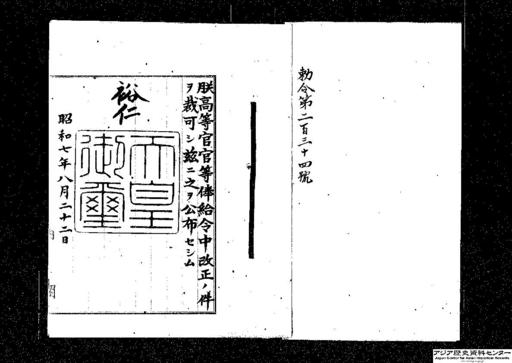 勅令第二百三十四號
朕高等官官等俸給令中改正ノ件
ヲ裁可シ茲ニ之ヲ公布セシム
裕仁
天皇
御璽
昭和七年八月二十二日
アジア歴史資料センター
Japan Center for Asian Historical Records